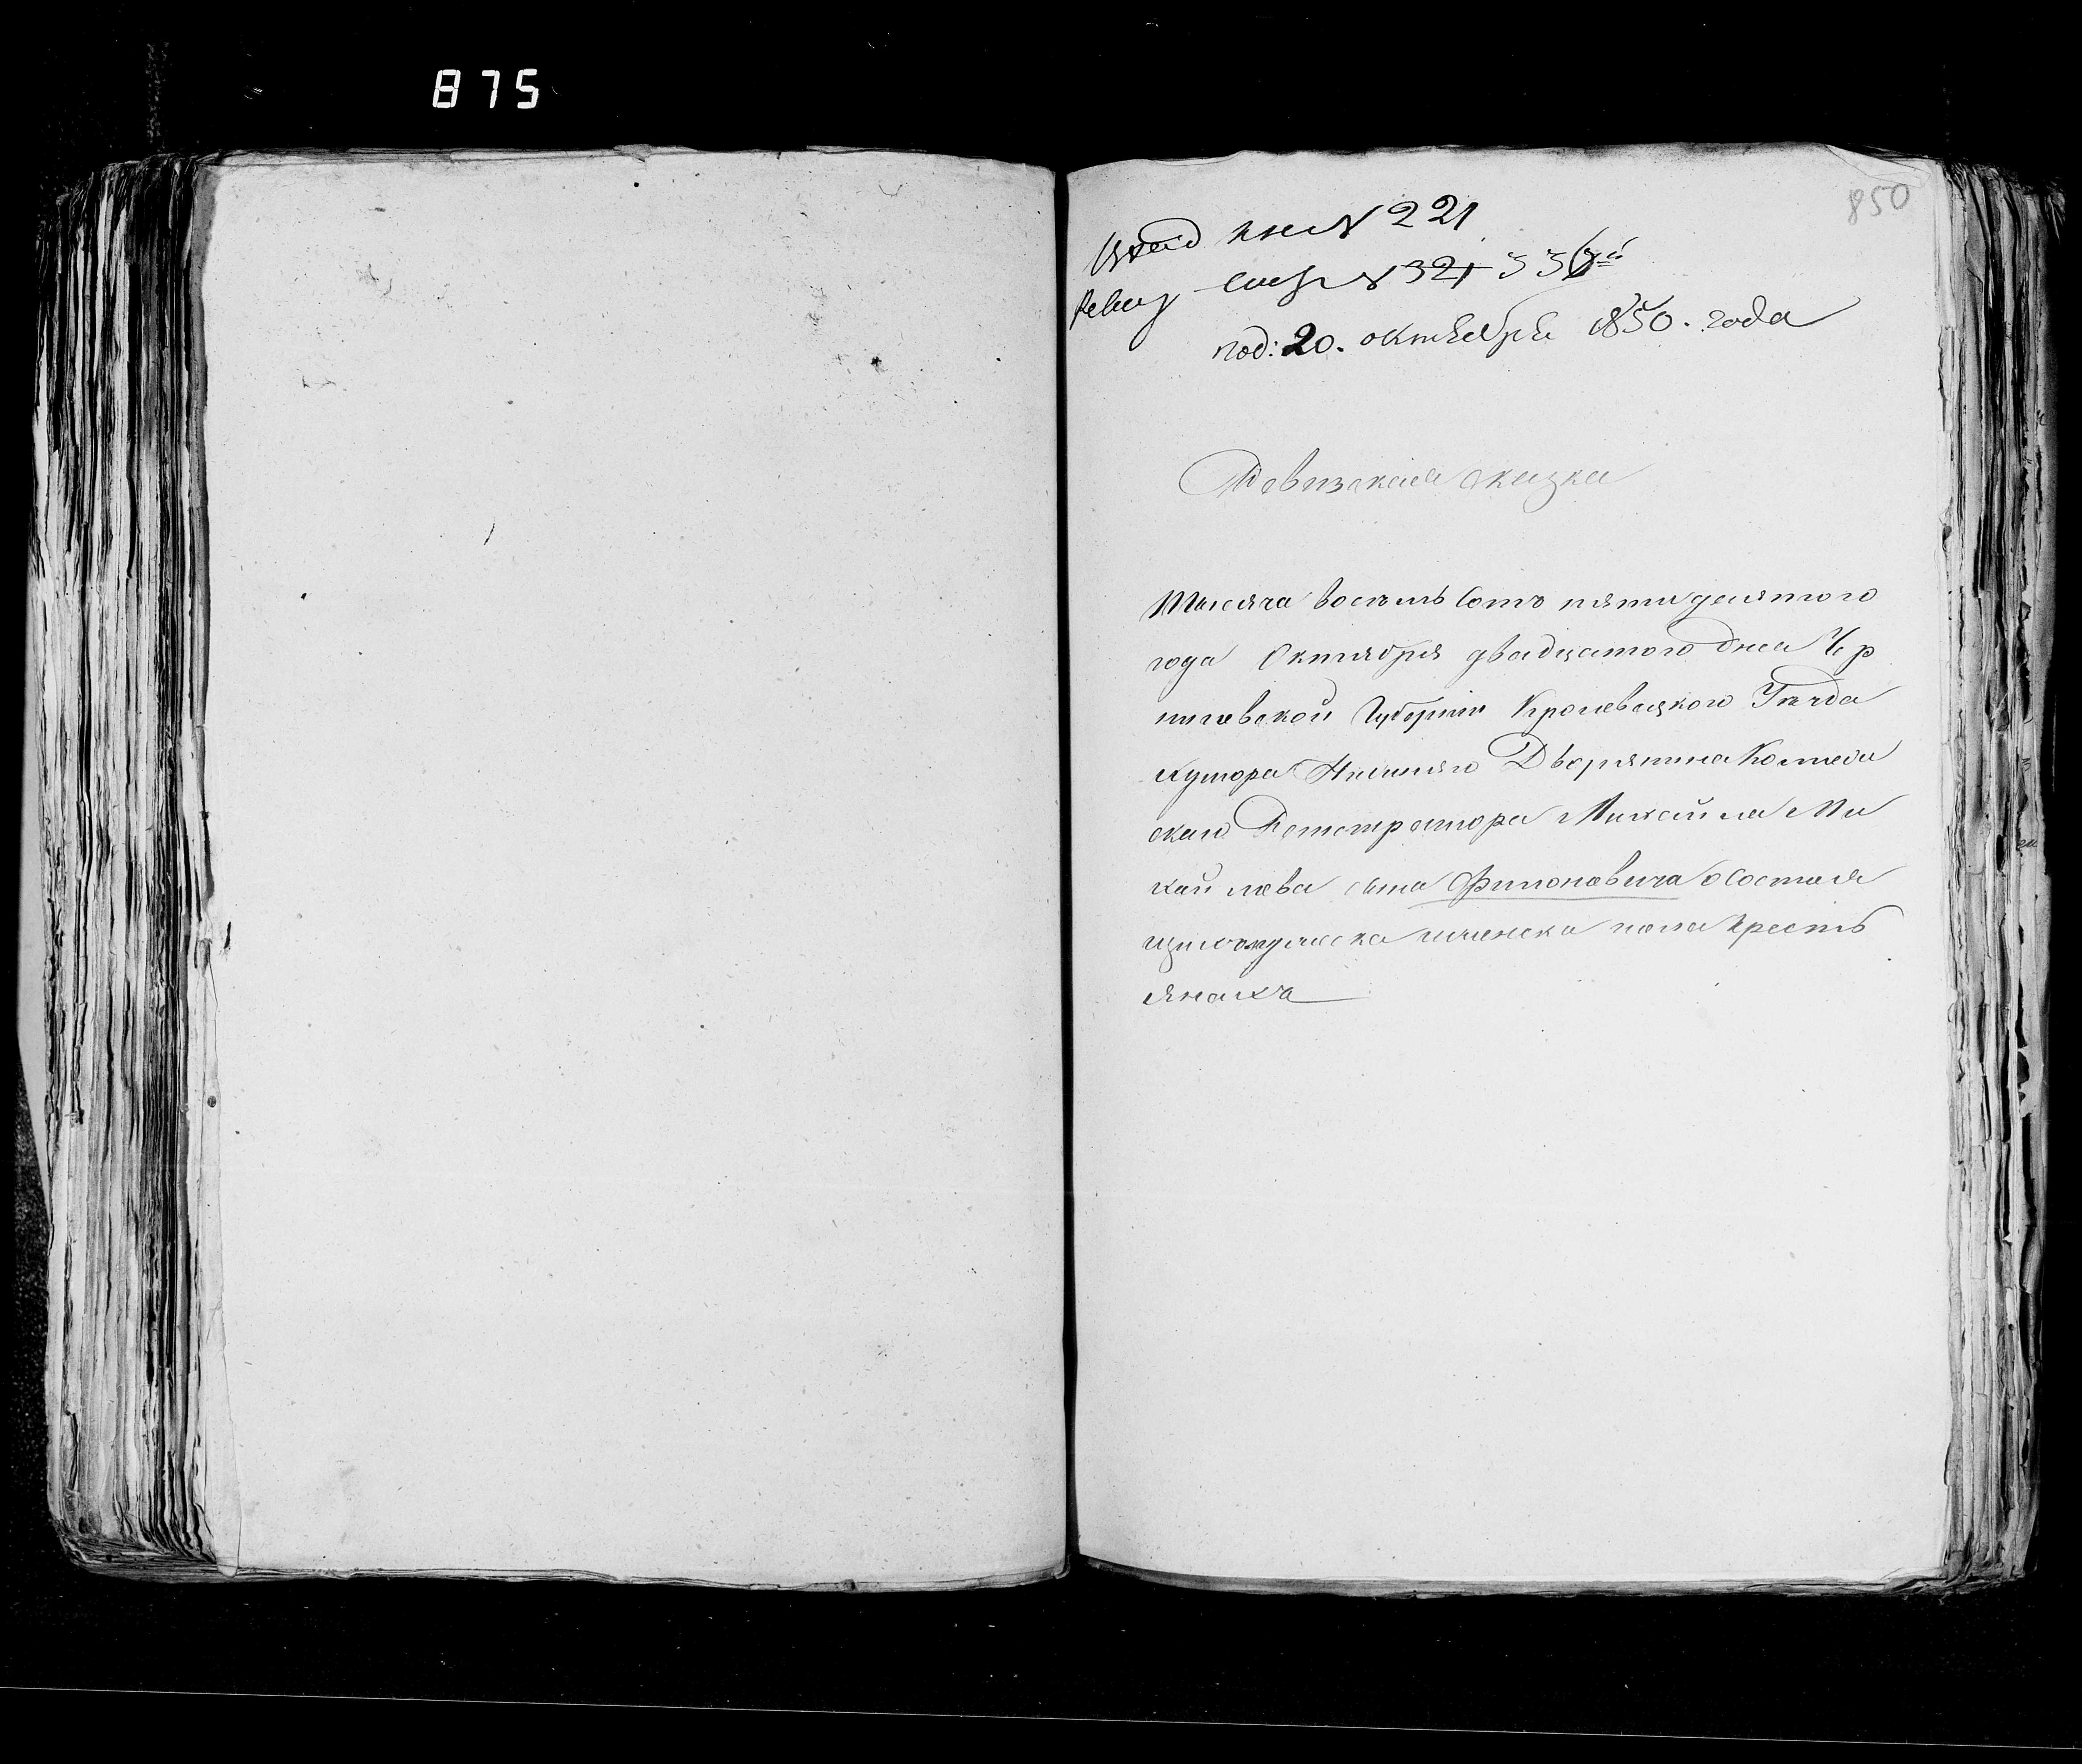 875
850
Вход кн № 221
Ревиз сказ № 321 336
под: 20. октября 1850. года
Ревизская сказка
Тысяча восемь Сотъ пятидесятого
года Октября двадцатого дня Чер
ниговской Губерніи Кролевецкого Уезда
хутора Дворянина Коллежи
скаго Регистратора Михайла Ми
хайлова сына Филоновича о Состоя
щихъ мужеска и женска пола Кресть
янахъ